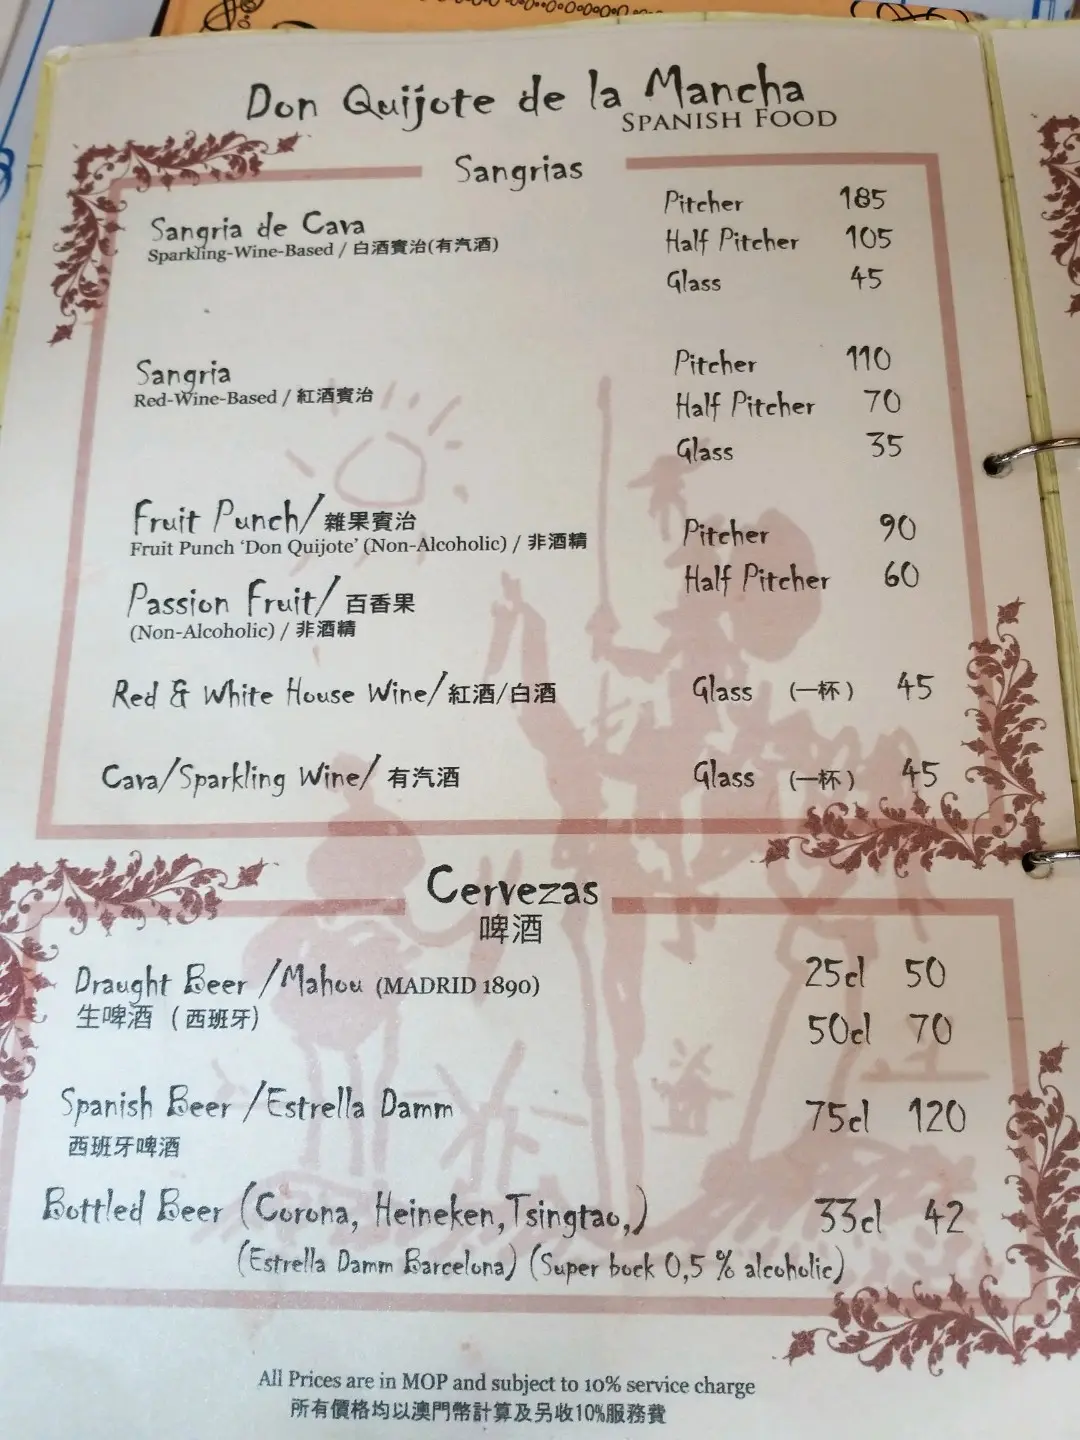 Don Quijote de la Mancha
SPANISH FOOD
Sangrias
Sangria de Cava
Sparkling-Wine-Based / 白酒賓治(有汽酒)
Pitcher 185
Half Pitcher 105
Glass 45
Sangria
Red-Wine-Based / 紅酒賓治
Pitcher 110
Half Pitcher 70
Glass 35
Fruit Punch/ 雜果賓治
Fruit Punch ‘Don Quijote’ (Non-Alcoholic) / 非酒精
Pitcher 90
Half Pitcher 60
Passion Fruit/ 百香果
(Non-Alcoholic) / 非酒精
Red & White House Wine/ 紅酒/白酒 Glass (一杯) 45
Cava/Sparkling Wine/ 有汽酒 Glass (一杯) 45
Cervezas
啤酒
Draught Beer /Mahou (MADRID 1890) 25cl 50
生啤酒 (西班牙) 50cl 70
Spanish Beer /Estrella Damm 75cl 120
西班牙啤酒
Bottled Beer (Corona, Heineken,Tsingtao,) 33cl 42
(Estrella Damm Barcelona) (Super bock 0,5 % alcoholic)
All Prices are in MOP and subject to 10% service charge
所有價格均以澳門幣計算及另收10%服務費